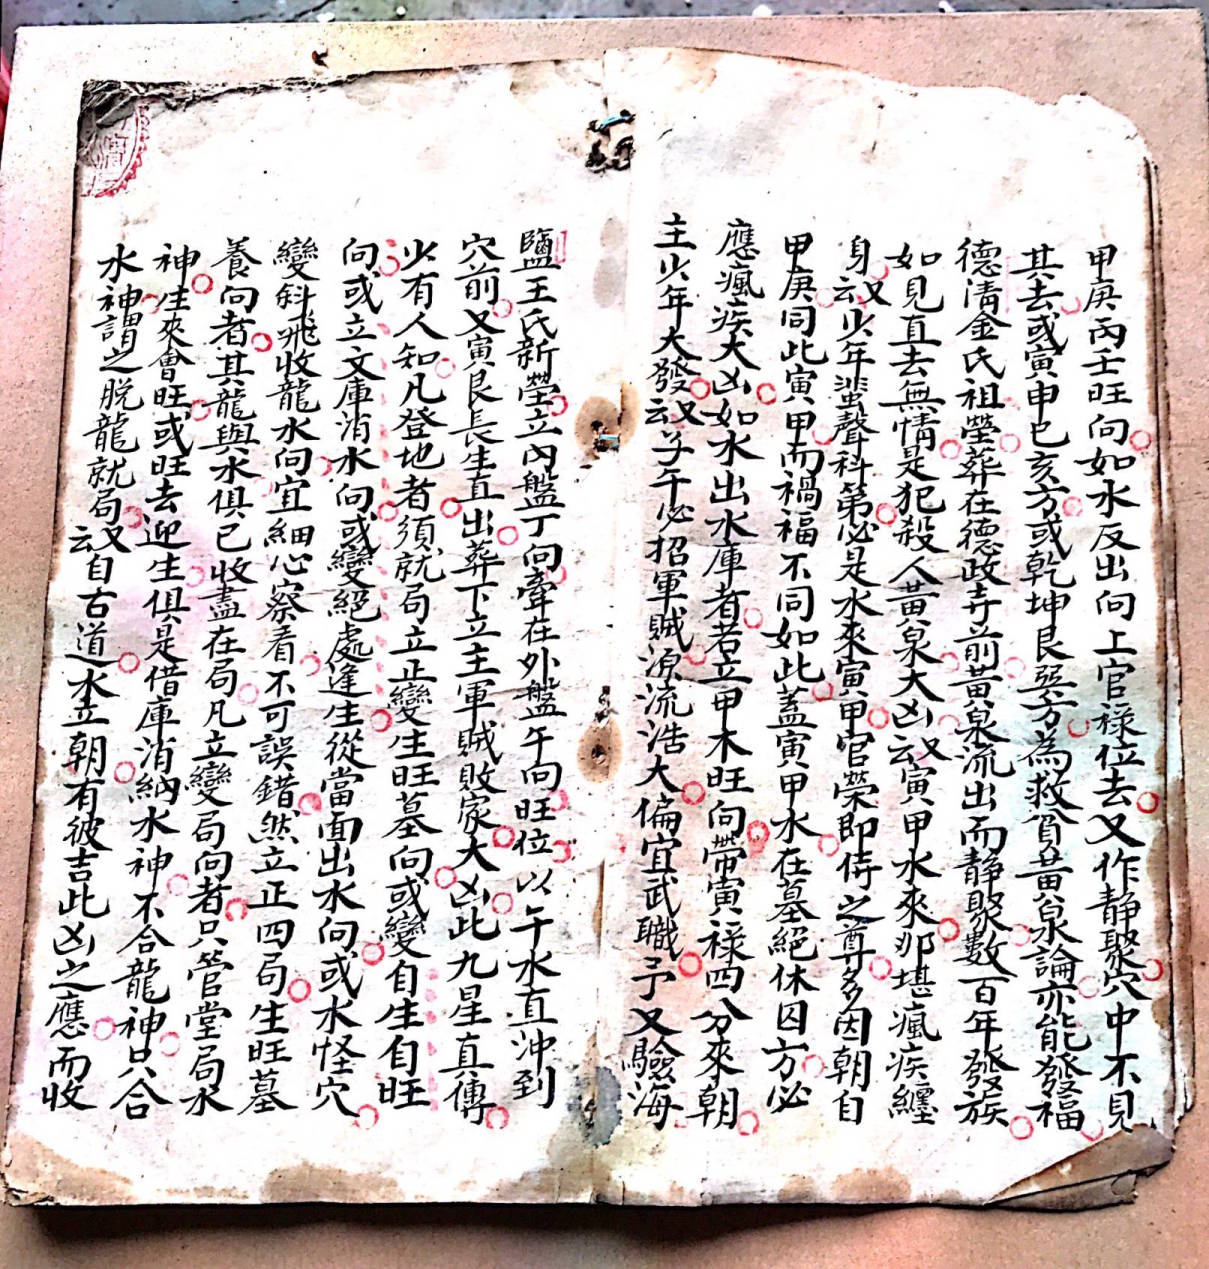 甲庚丙壬旺向如水反出向上官祿位去又作靜聚穴中不見
其去或寅申巳亥方或乾坤艮巽方為救貧黃泉論亦能發福
德清金氏祖塋葬在德政寺前黃泉流出而靜聚數百年發族
如見直去無情是犯殺人黃泉大凶又云寅甲水來卯堪瘋疾纏
身又云少年蜚聲科第必是水來寅甲官榮即侍之尊多因朝自
甲庚同此寅甲而禍福不同如此蓋寅甲水在墓絕休囚方必
應瘋疾大凶如水出水庫者若立甲木旺向帶寅祿四分來朝
主少年大發又云子午必招軍賊源流浩大偏宜武職予又驗海
鹽王氏新塋立內盤丁向牽在外盤午向旺位以午水直沖到
穴前又寅艮長生直出葬下立主軍賊敗家大凶此九星真傳
少有人知凡登地者須就局立正變生旺墓向或變自生自旺
向或立文庫消水向或變絕處逢生從當面出水向或水怪穴
變斜飛收龍水向宜細心察看不可誤錯然立正四局生旺墓
養向者其龍與水俱已收盡在局凡立變局向者只管堂局水
神生來會旺或旺去迎生俱是借庫消納水神不合龍神只合
水神謂之脫龍就局又云自古道水立朝有彼吉此凶之應而收